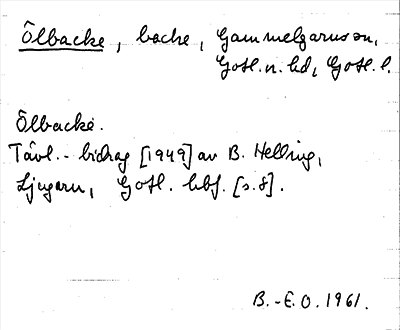 Ölbacke, backe, Gammelgarns sn,
Gotl. n. hd, Gotl. l.
Ölbacke.
Tävl.-bidrag [1949] av B. Helling,
Ljugarn, Gotl. hbf. [s. 8].
B.-E.O. 1961.